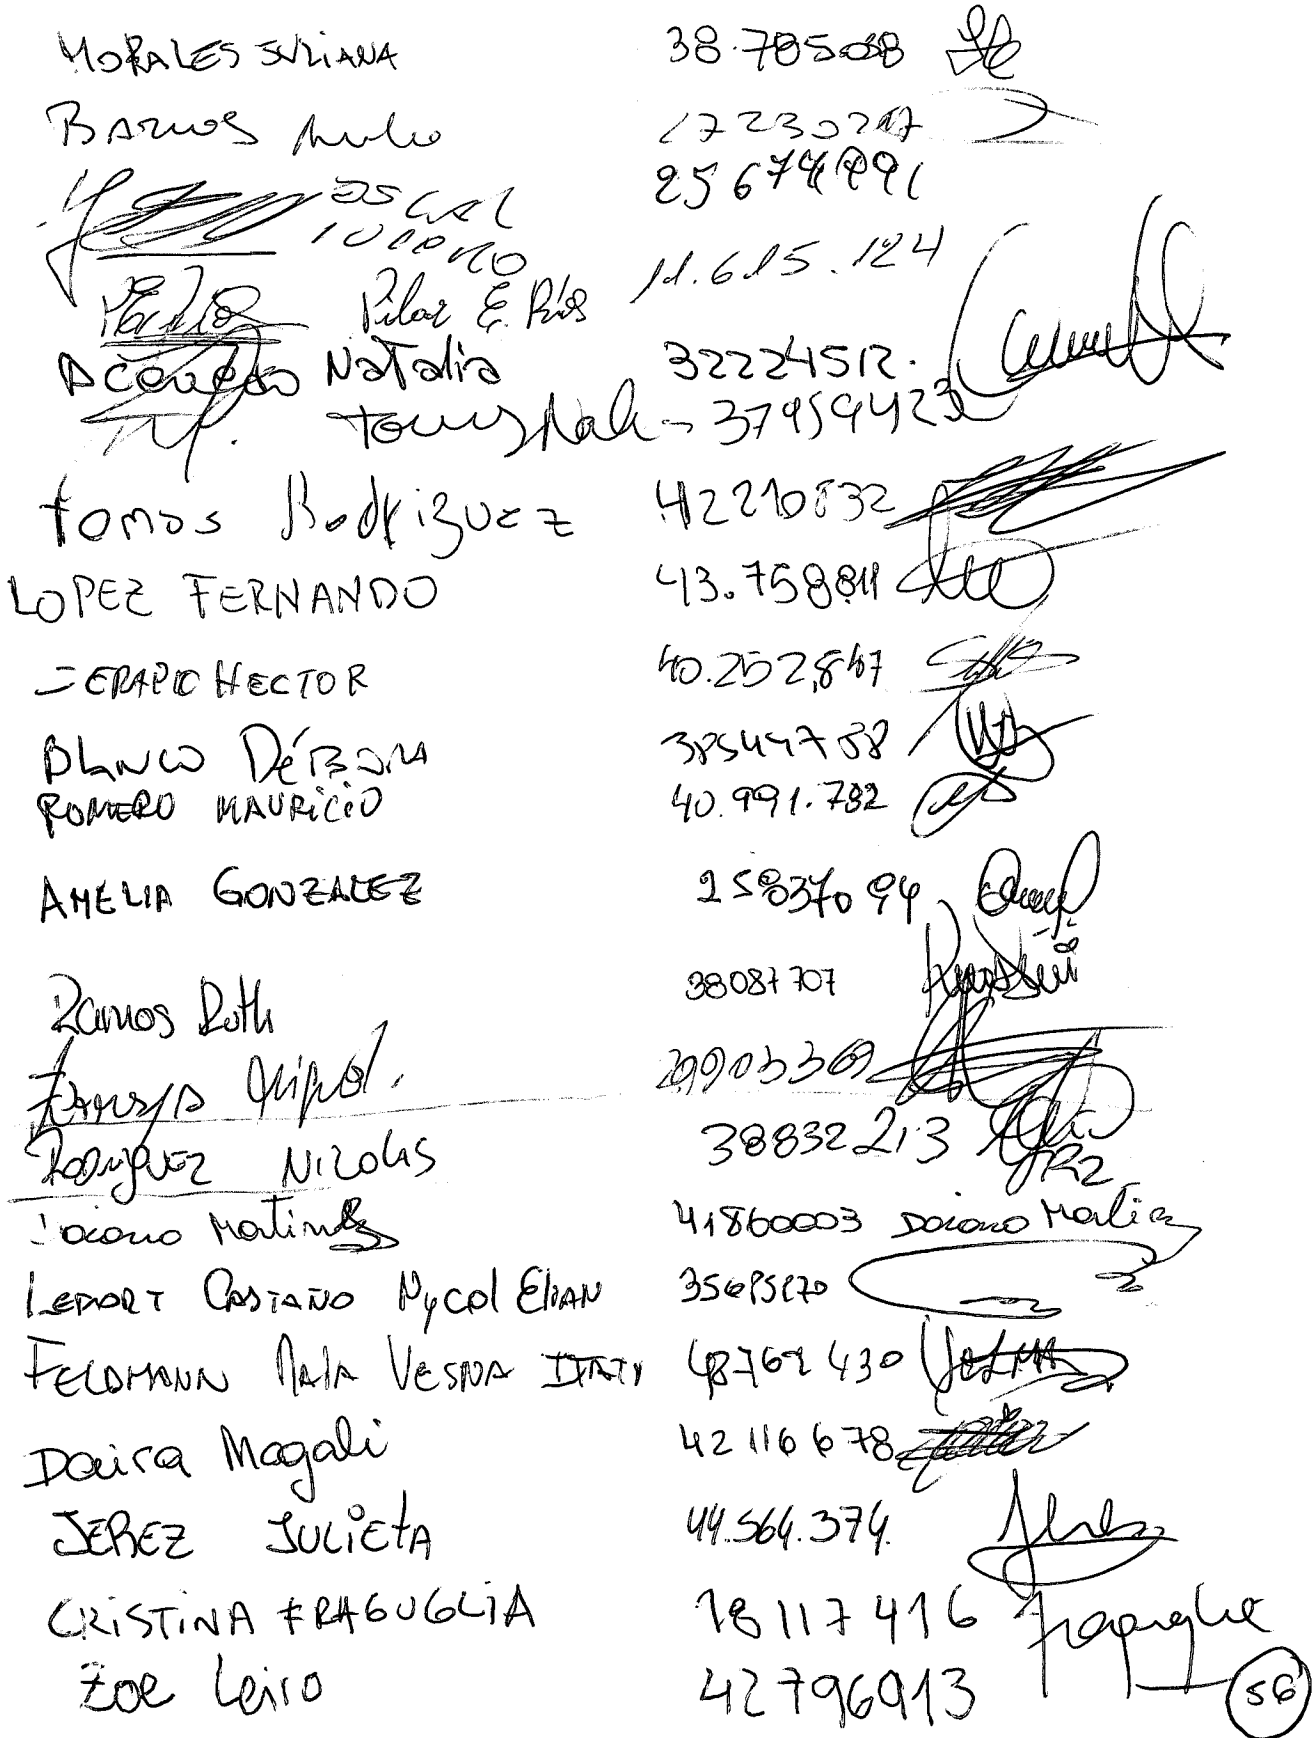 MORALES JULIANA 38.785.088
BARRIOS 17230207
OSCAR LUCERO 25674891
Pilar E. Ríos 11.615.124
Acevedo Natalia 32224512.
Torres - 37959423
Tomas Rodriguez 42210832
LOPEZ FERNANDO 43.758811
SERAPIO HECTOR 40.252,847
BLANCO DÉBORA 38544788
ROMERO MAURICIO 40.991.782
AMELIA GONZALEZ 25837094
Ramos Ruth 38087707
29903369
RODRIGUEZ NICOLAS 38832213
Daiana Martinez 41860003 Daiana
LEPORT CASTAÑO Nycol Elian
FELDMANN MAIA VESNA 48769430
Daira Magali 42116678
JEREZ JULIETA 44.564.374.
CRISTINA FRAGUGLIA 18117416
Zoe Leiro 42796913
56